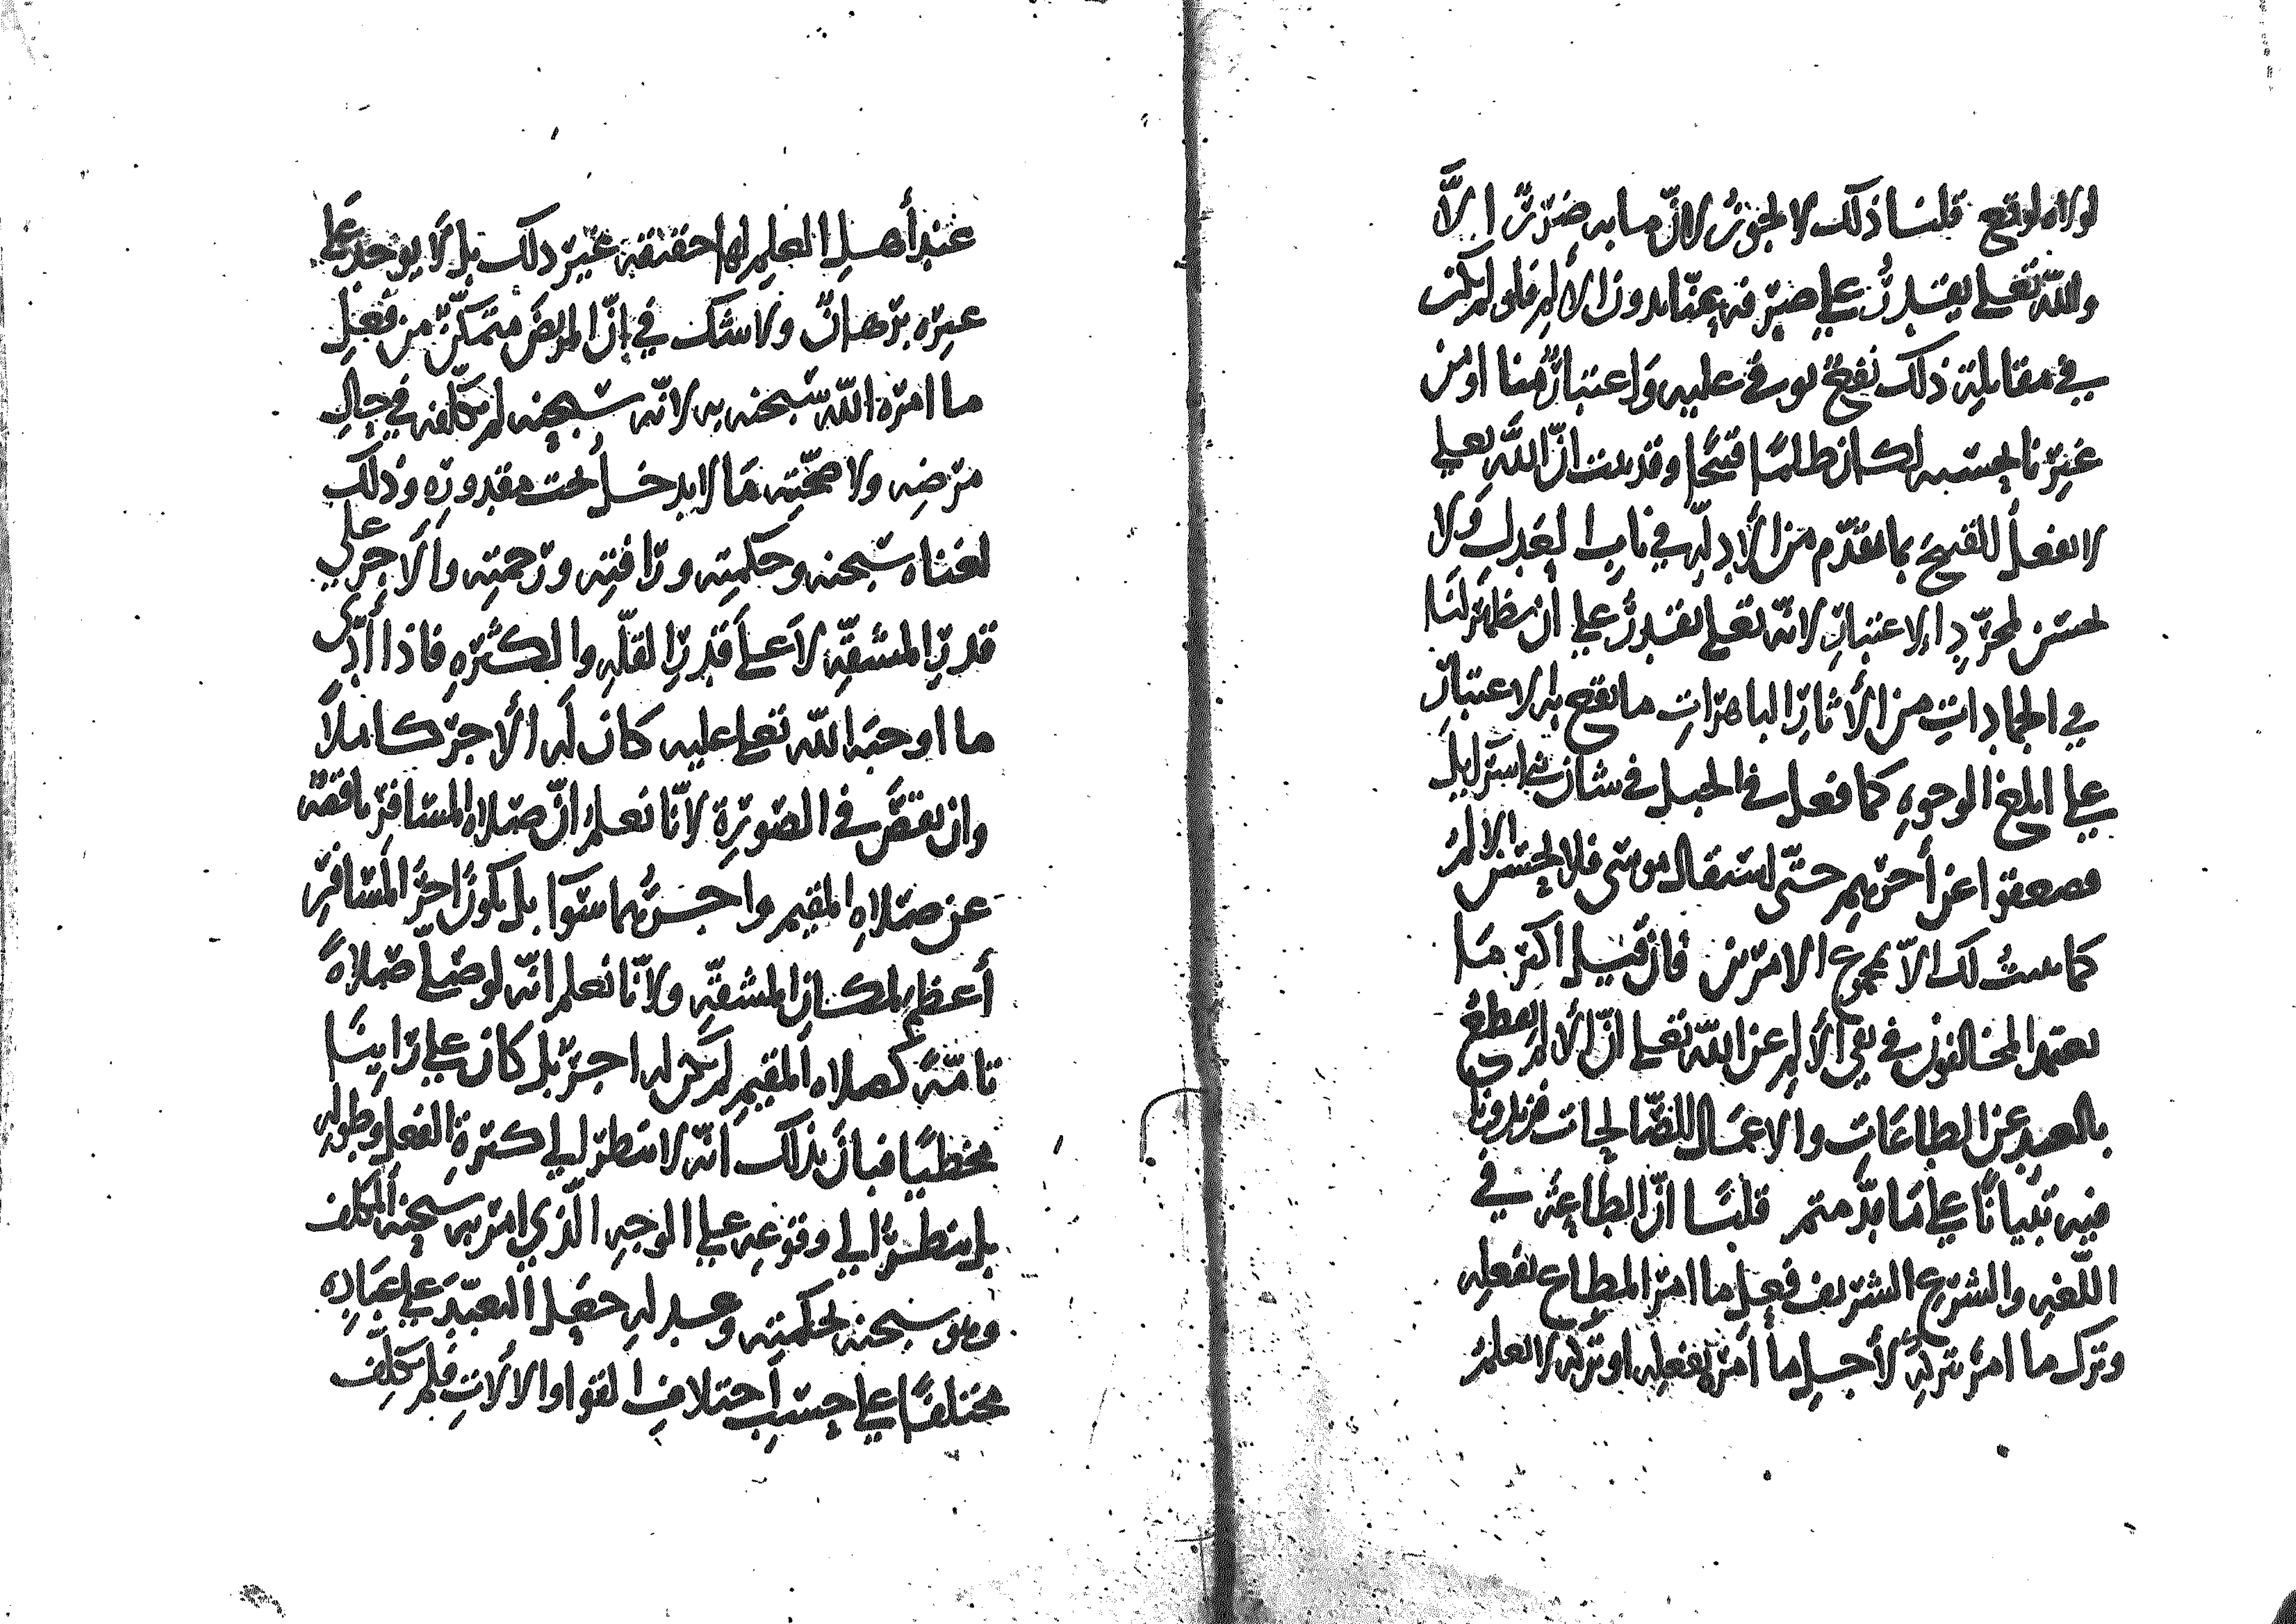 لولاه لوقع قلنا ذلك لا يجوز لان ما به ضرر الا
والله تعلى يقدر على صرفه عنا بدون الألم فلو لم يكن
في مقابلة ذلك نفع يوفى عليه واعتبار هنا او من
غيرنا بحسبه لكان ظلما قبيحا وقد بينت ان الله تعلى
لا يفعل القبيح بما تقدم من الأدلة في باب العدل ولا
يحسن لمجرد الاعتبار لانه تعلى يقدر على ان يظهر لنا
في الجمادات من الأثار الباهرات ما يقع به الاعتبار
على ابلغ الوجوه كما فعل في الجبل في شان بني اسرايل
فصعقوا عن أخرهم حتى استقال موسى فلا يحسن الألم
كما بينت لك الا بمجموع الامرين فان قيل اكثر ما
يعتمد المخالفون في نفي الألم عن الله تعلى ان الألم يقطع
بالعبد عن الطاعات والاعمال الصالحات فزيدونا
فيه تبيانا على ما قدمتم قلنا ان الطاعة في
اللغة والشرع الشريف فعل ما امر المطاع بفعله
وترك ما امر بتركه لأجل ما أمر بفعله او تركه لا نعلم
عند أهل العلم لها حقيقة غير ذلك بل لا يوجد على
غيره برهان ولا شك في ان المريض متمكن من فعل
ما امره الله سبحنه به لانه سبحنه لم يكلفه في حال
مرضه ولا صحته ما لا يدخل تحت مقدوره وذلك
لغناه سبحنه وحكمته ورافته ورحمته والأجر على
قدر المشقة لا على قدر القلة والكثرة فاذا أدى
ما اوجبه الله تعلى عليه كان له الأجر كاملا
وان نقص في الصورة لانا نعلم ان صلاة المسافر ناقصة
عن صلاة المقيم واجرهما سوآ بل يكون اجر المسافر
أعظم لمكان المشقة ولانا نعلم انه لو صلى صلاة
تامة كصلاة المقيم لم يكن له اجر بل كان على راينا
مخطيا فبان بذلك انه لا ينظر الى كثرة الفعل وطوله
بل ينظر الى وقوعه على الوجه الذي امر به سبحنه المكلف
وهو سبحنه لحكمته وعدله جعل التعبد على عباده
مختلفا على حسب اختلاف القوا والألات فلم يكلف